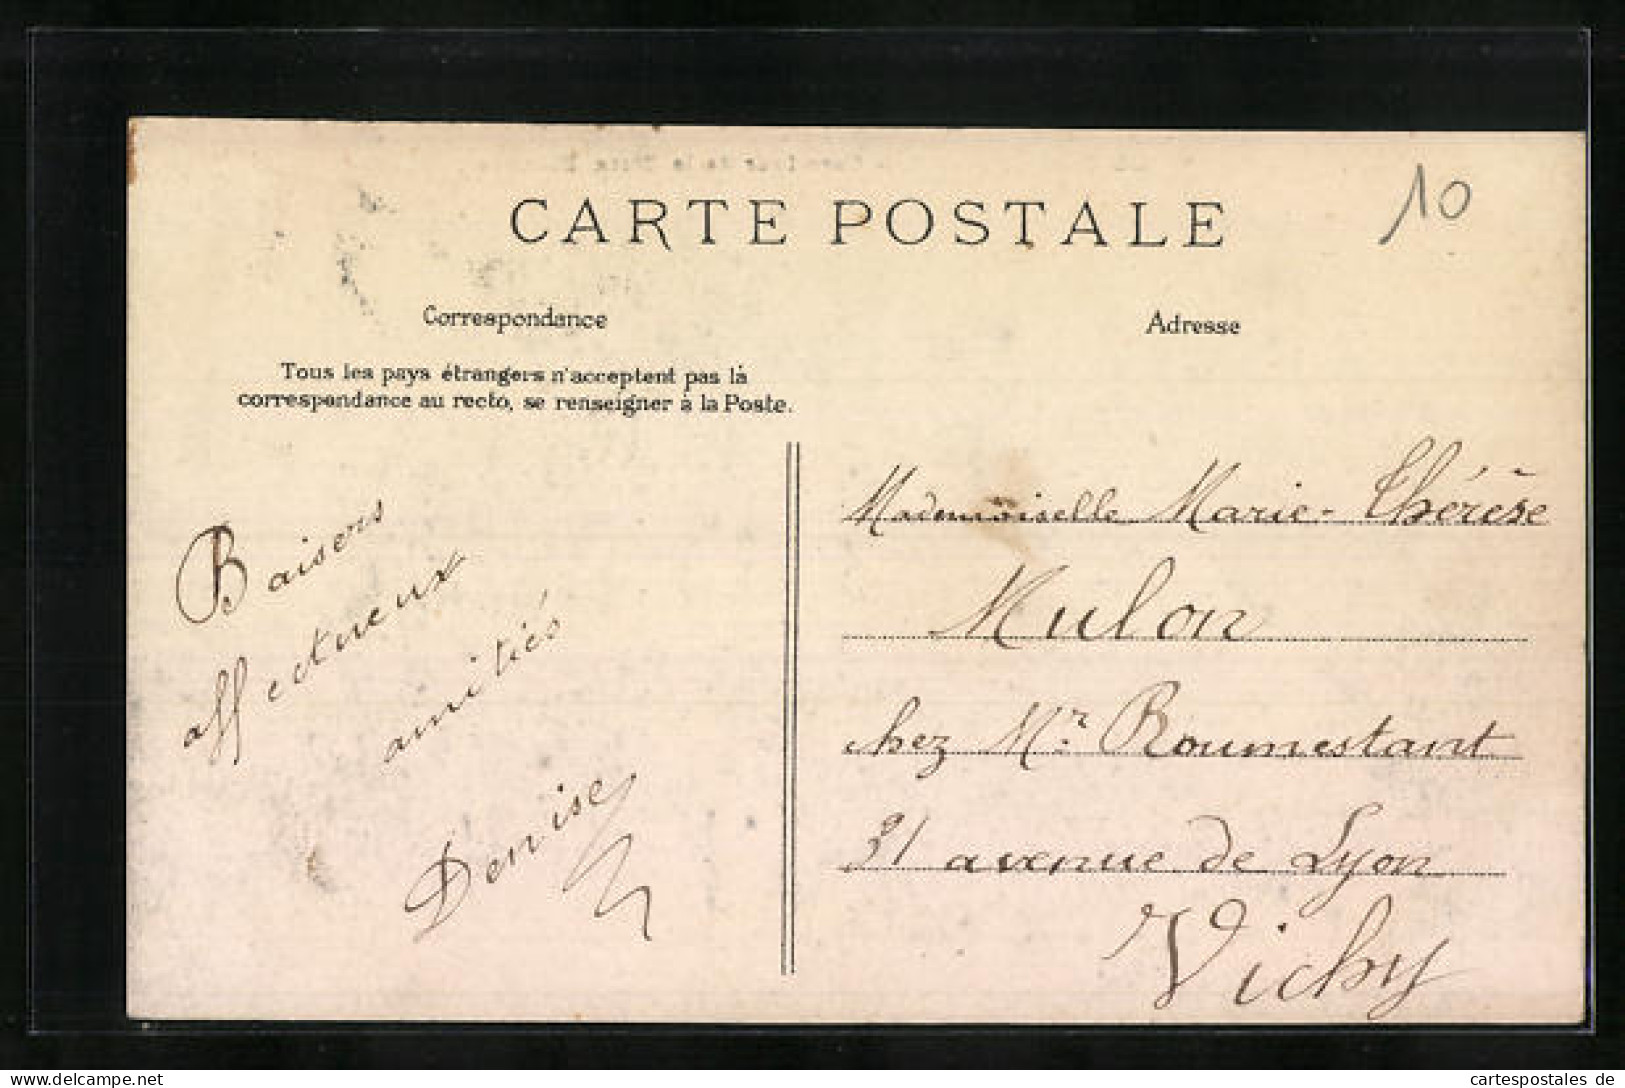 CARTE POSTALE
10
Correspondance
Adresse
Tous les pays étrangers n'acceptent pas la
correspondance au recto, se renseigner à la Poste.
Baisers
affectueux
amitiés
Denise
Mademoiselle Marie-Thérèse
Mulon
chez Mr Roumestant
31 avenue de Lyon
Vichy
www.delcampe.net
cartespostales de